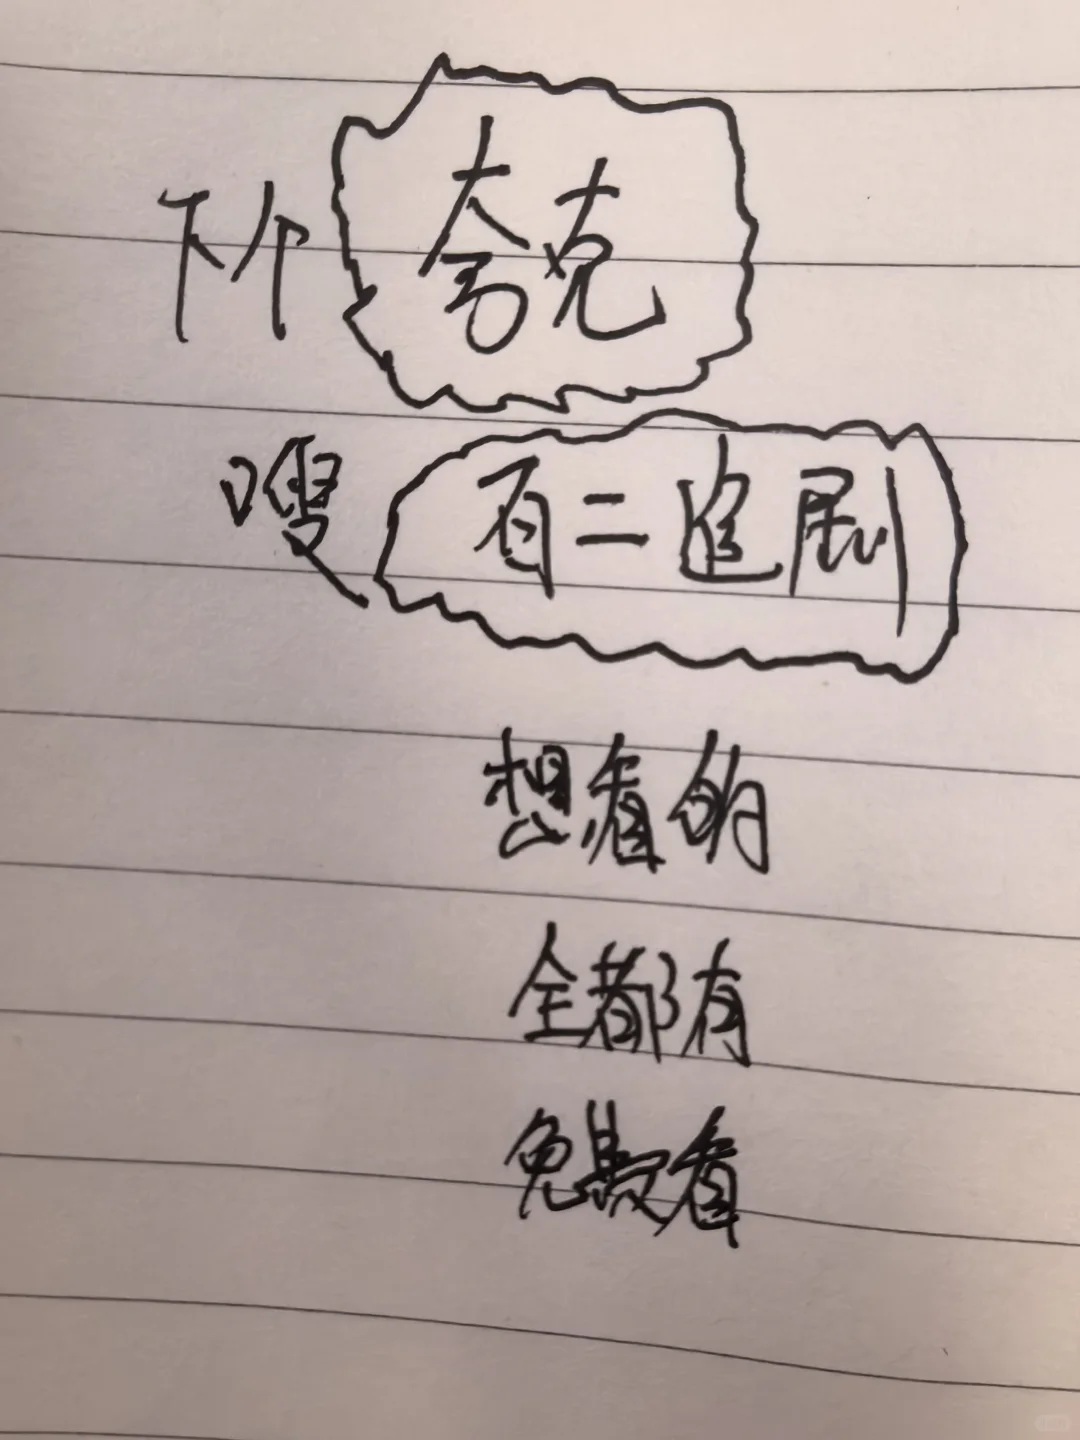 下个夸克
嗖百二追剧
想看的
全都有
免费看